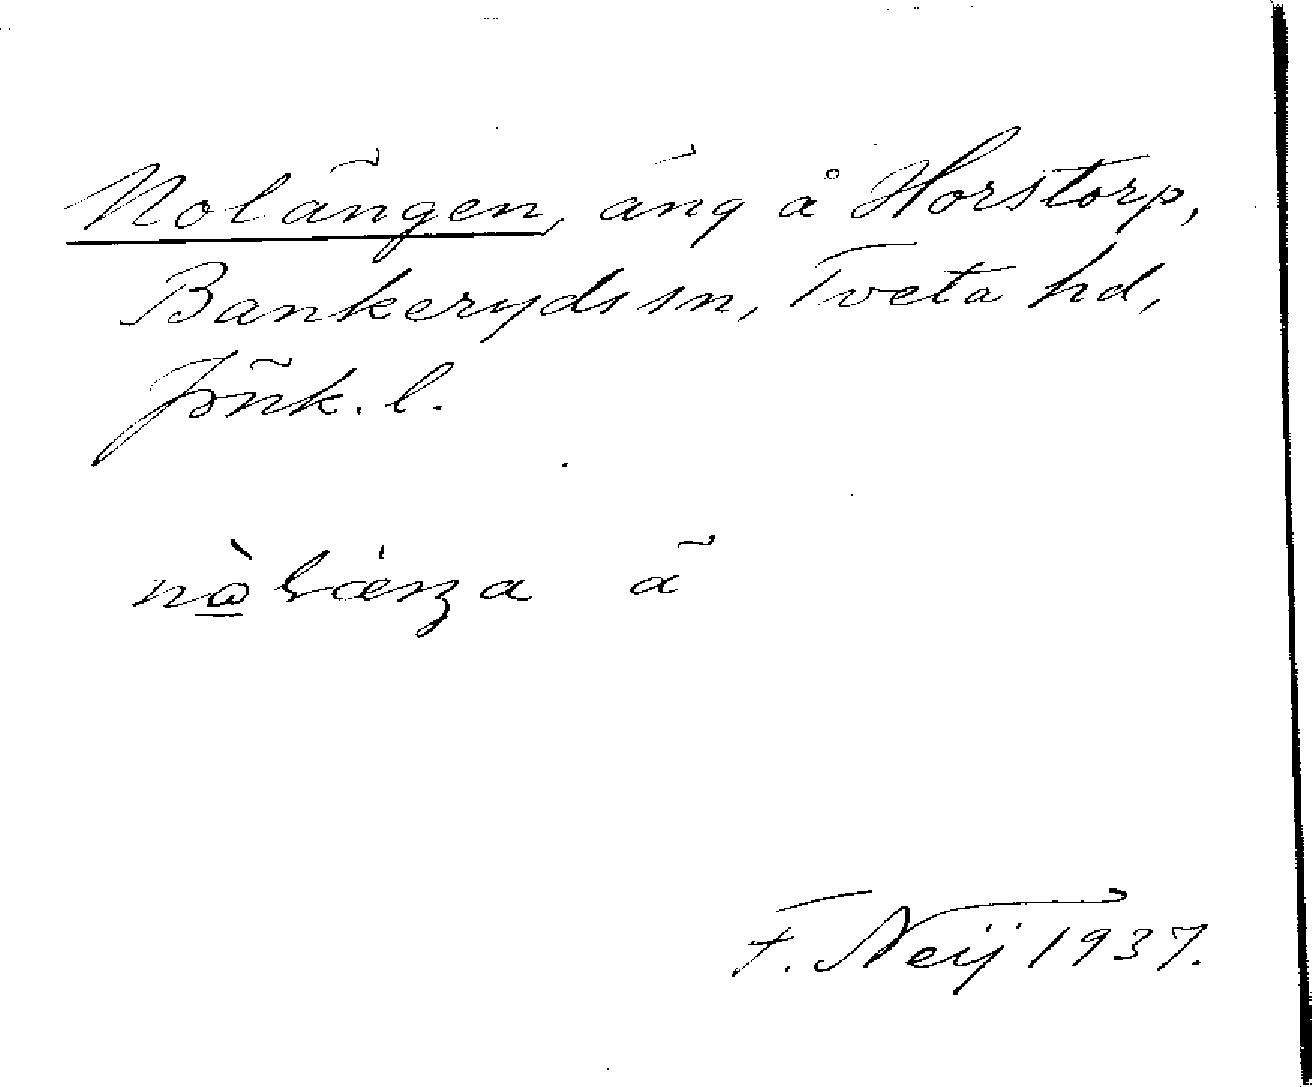 Nolängen, äng å Horstorp,
Bankeryds sn, Tveta hd,
Jönk. l.
ä
F. Neij 1937.